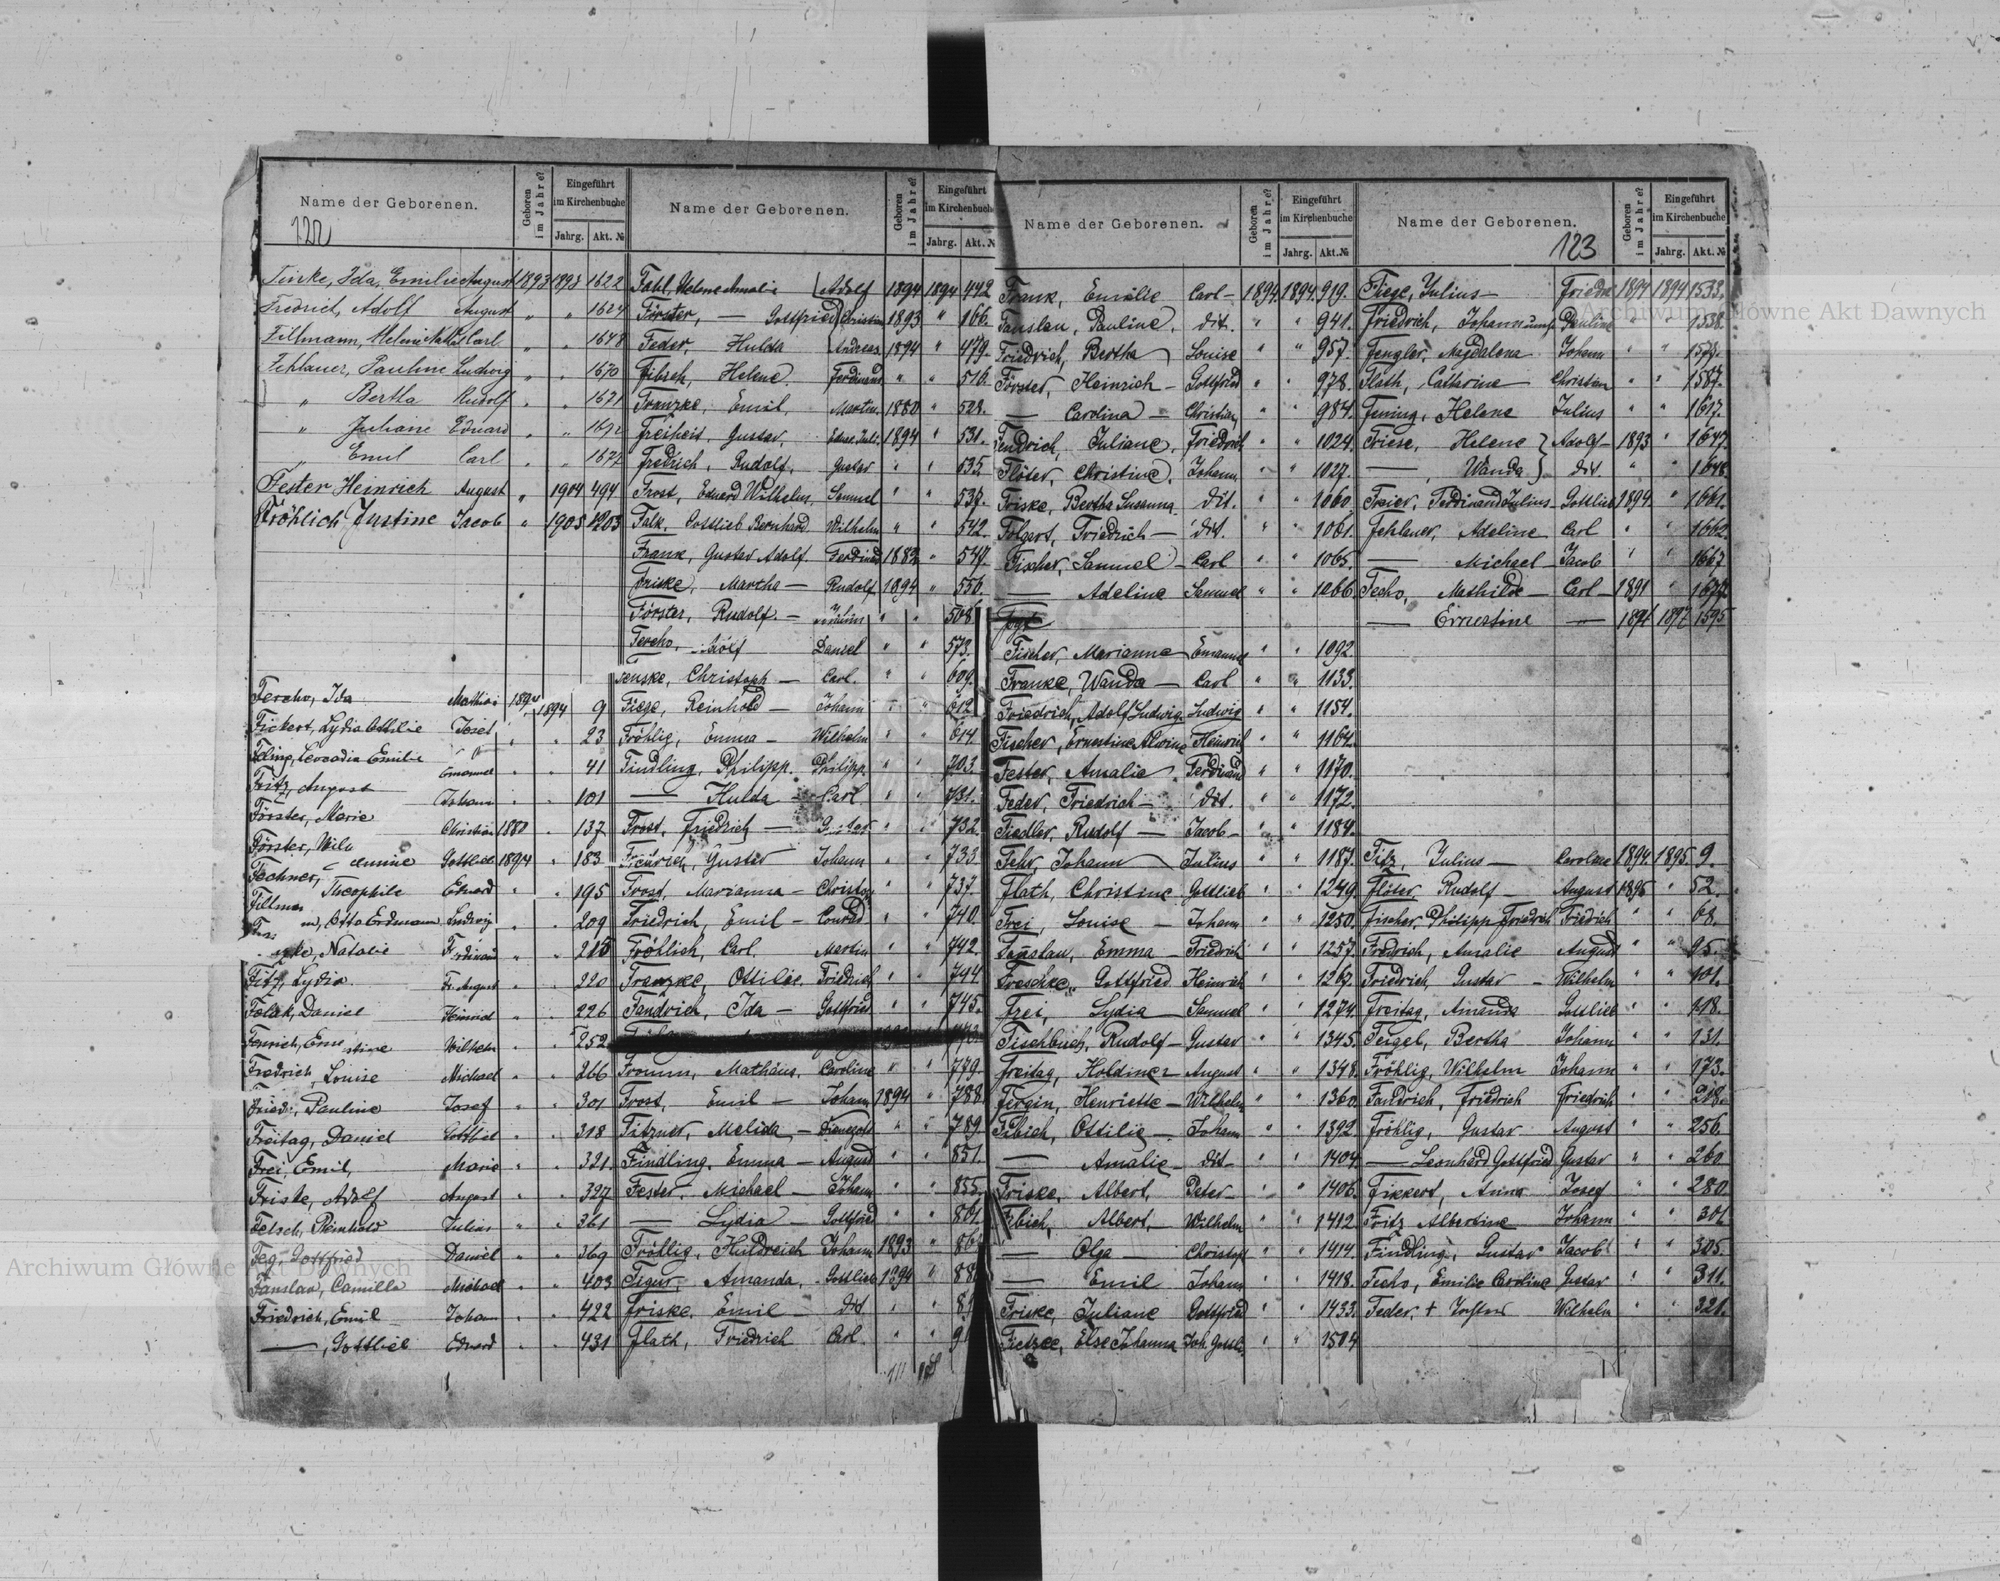 Name der Geborenen.
Geboren im Jahre?
Eingeführt im Kirchenbuche
Jahrg. Akt. №
122
Ida, Emilie August 1893 1893 1622
Fredrich, Adolf August " " 1624
Fillmann, Carl " " 1648
Fehlauer, Pauline Ludwig " " 1670
" Bertha Rudolf " " 1671
" Juliane Eduard " "
" Emil Carl " " 1677
Fester Heinrich August " 1904 494
Fröhlich, Justine Jacob " 1905 1203
Fercho, Ida Mathias 1894 1894 9
Fickert, Lydia Ottilie Josef " " 23
Leocadia Emilie Emanuel " " 41
Fritz, August Johann " " 101
Förster, Marie Christian 1880 " 137
Förster, Gottlieb 1894 " 183
Fechner, Theophile Eduard " " 195
Otto Erdmann Ludwig " " 209
Natalie Ferdinand " " 215
Fitz, Lydia Fr. August " " 220
Folak, Daniel Heinrich " " 226
Ernestine Wilhelm " " 252
Fredrich, Louise Michael " " 266
Pauline Josef " " 301
Freitag, Daniel Gottlieb " " 318
Frei, Emil, Marie " " 321
Friske, Adolf August " " 327
Fetsch, Reinhold Julius " " 361
Feg, Gottfried Daniel " " 369
Fanslau, Camilla Michael " " 403
Friedrich, Emil Johann " " 422
—, Gottlieb Eduard " " 431
Name der Geborenen.
Geboren im Jahre?
Eingeführt im Kirchenbuche
Jahrg. Akt. №
Helene Amalie Adolf 1894 1894 442
Förster, — Gottfried Christian 1893 " 166.
Feder, Hulda Andreas 1894 " 479.
Fibich, Helene. Ferdinand " " 516.
Franzke, Emil, Martin. 1880 " 528.
Freiheit, Gustav, 1894 " 531.
Fredrich, Rudolf, Gustav " " 535
Frost, Eduard Wilhelm, Samuel " " 537.
Falk, Gottlieb Bernhard Wilhelm " " 542.
Frank, Gustav Adolf. Ferdinand 1882 " 547.
Friske, Martha — Rudolf 1894 " 556.
Förster, Rudolf. — " " 568
Fercho, Adolf Daniel " " 573.
Christoph — Carl. " " 609.
Fiege, Reinhold — Johann " " 612.
Fröhlig, Emma — Wilhelm " " 614.
Findling, Philipp. Philipp. " " 703.
— Hulda — Carl " " 731.
Frost, Friedrich — Gustav " " 732.
Gustav Johann " " 733
Frost, Marianna — Christof " " 737.
Friedrich, Emil — Conrad " " 740.
Fröhlich, Carl. Martin " " 742.
Franzke, Ottilie. Friedrich " " 744.
Fandrich, Ida — Gottfried " " 745.
Fromm, Mathäus. Caroline " " 779.
Frost, Emil — Johann 1894 " 788.
Fitzner, Melida, " " 789
Findling, Emma — August " " 851.
Fester, Michael — Johann " " 855.
— Lydia — Gottfried " " 861.
Fröhlig, Huldreich Johann 1893 "
Amanda, Gottlieb 1894 "
Friske, Emil — dit " "
Flath, Friedrich Carl. " "
Name der Geborenen.
Geboren im Jahre?
Eingeführt im Kirchenbuche
Jahrg. Akt. №
Frank, Emilie Carl — 1894. 1894. 919.
Fanslau, Pauline, dit. " " 941.
Friedrich, Bertha Louise " " 957.
Förster, Heinrich — Gottfried " " 978.
— Carolina — Christian " " 984.
Fendrich, Juliane, Friedrich " " 1024.
Flöter, Christine, Johann, " " 1027.
Friske, Bertha Susanna dit. " " 1060.
Folgert, Friedrich — dit. " " 1061.
Fischer, Samuel — Carl " " 1065.
— Adeline Samuel " " 1066
Fischer, Marianne Emanuel " " 1092.
Franke, Wanda — Carl " " 1133.
Friedrich, Adolf Ludwig. Ludwig " " 1154.
Fischer, Ernestine Alwine Heinrich " " 1164.
Fester, Amalie Ferdinand " " 1170.
Feder, Friedrich — dit. " " 1172.
Fiedler, Rudolf — Jacob — " " 1184.
Fehr, Johann Julius " " 1187.
Flath, Christine Gottlieb " " 1249.
Frei, Louise — Johann " " 1250.
Fanslau, Emma — Friedrich " " 1257.
Freschke, Gottfried Heinrich " " 1267.
Frei, Lydia — Samuel " " 1274.
Fischbuch, Rudolf — Gustav " " 1345.
Freitag, Holdiner August " " 1348.
Fergin, Henriette — Wilhelm " " 1360.
Fibich, Ottilie — Johann " " 1392.
— Amalie — dit — " " 1404.
Friske, Albert, Peter — " " 1406.
Fibich, Albert, — Wilhelm " " 1412
— Olga — Christof " " 1414.
— Emil Johann " " 1418.
Friske, Juliane Gottfried " " 1433.
Else Johanna Joh. Gottl. " " 1504
Name der Geborenen.
123
Geboren im Jahre?
Eingeführt im Kirchenbuche
Jahrg. Akt. №
Fiege, Julius — 1894 1894 1533.
Friedrich, Pauline " " 1538.
Fengler, Magdalena Johann " " 1577.
Flath, Catharine — Christian " " 1587.
Helene Julius " " 1617.
Friese, Helene Adolf — 1893 " 1647.
— Wanda dit. " " 1648.
Freier, Ferdinand Julius Gottlieb 1894 " 1661.
Fehlauer, Adeline Carl " " 1662.
— Michael — Jacob " " 1667
Fecho, Mathilde — Carl — 1891 "
— Ernestine — 1897 1595
Fitz, Julius — Caroline 1894. 1895. 9.
Flöter, Rudolf — August 1895 " 52.
Fischer, Philipp Friedrich Friedrich " " 68.
Fredrich, Amalie August " " 95.
Friedrich, Gustav — Wilhelm " " 101.
Freitag, Amanda Gottlieb " " 118.
Feigel, Bertha Johann " " 131.
Fröhlig, Wilhelm Johann " " 173.
Fandrich, Friedrich Friedrich " " 218.
Fröhlig, Gustav — August " " 256.
— Leonhard Gottfried Gustav " " 260
Fikkert, Anna Josef " " 280
Fritz Albertine Johann " " 301
Findling, Gustav Jacob " " 305.
Fecho, Emilie Caroline Gustav " " 311.
Feder, + Wilhelm " " 321.
Archiwum Główne Akt Dawnych
Archiwum Główne Akt Dawnych